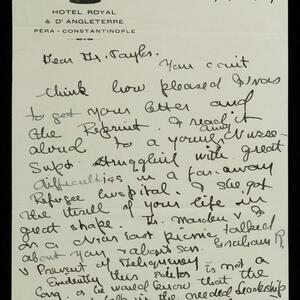 HOTEL ROYAL
& D'ANGLETERRE
PÉRA-CONSTANTINOPLE
Dear Dr. Taylor.
You can't
think how pleased I was
to get your letter and
the Reprint. I read it
aloud to a young Nurse
Supt struggling with great
difficulties in a far away
Refugee hospital. & she got
the thrill of your life in
great shape. Dr. Marden & I
on a picnic talked
about you
& Prevent of
Evidently this is not a
or he would know that the
the needed Leadership